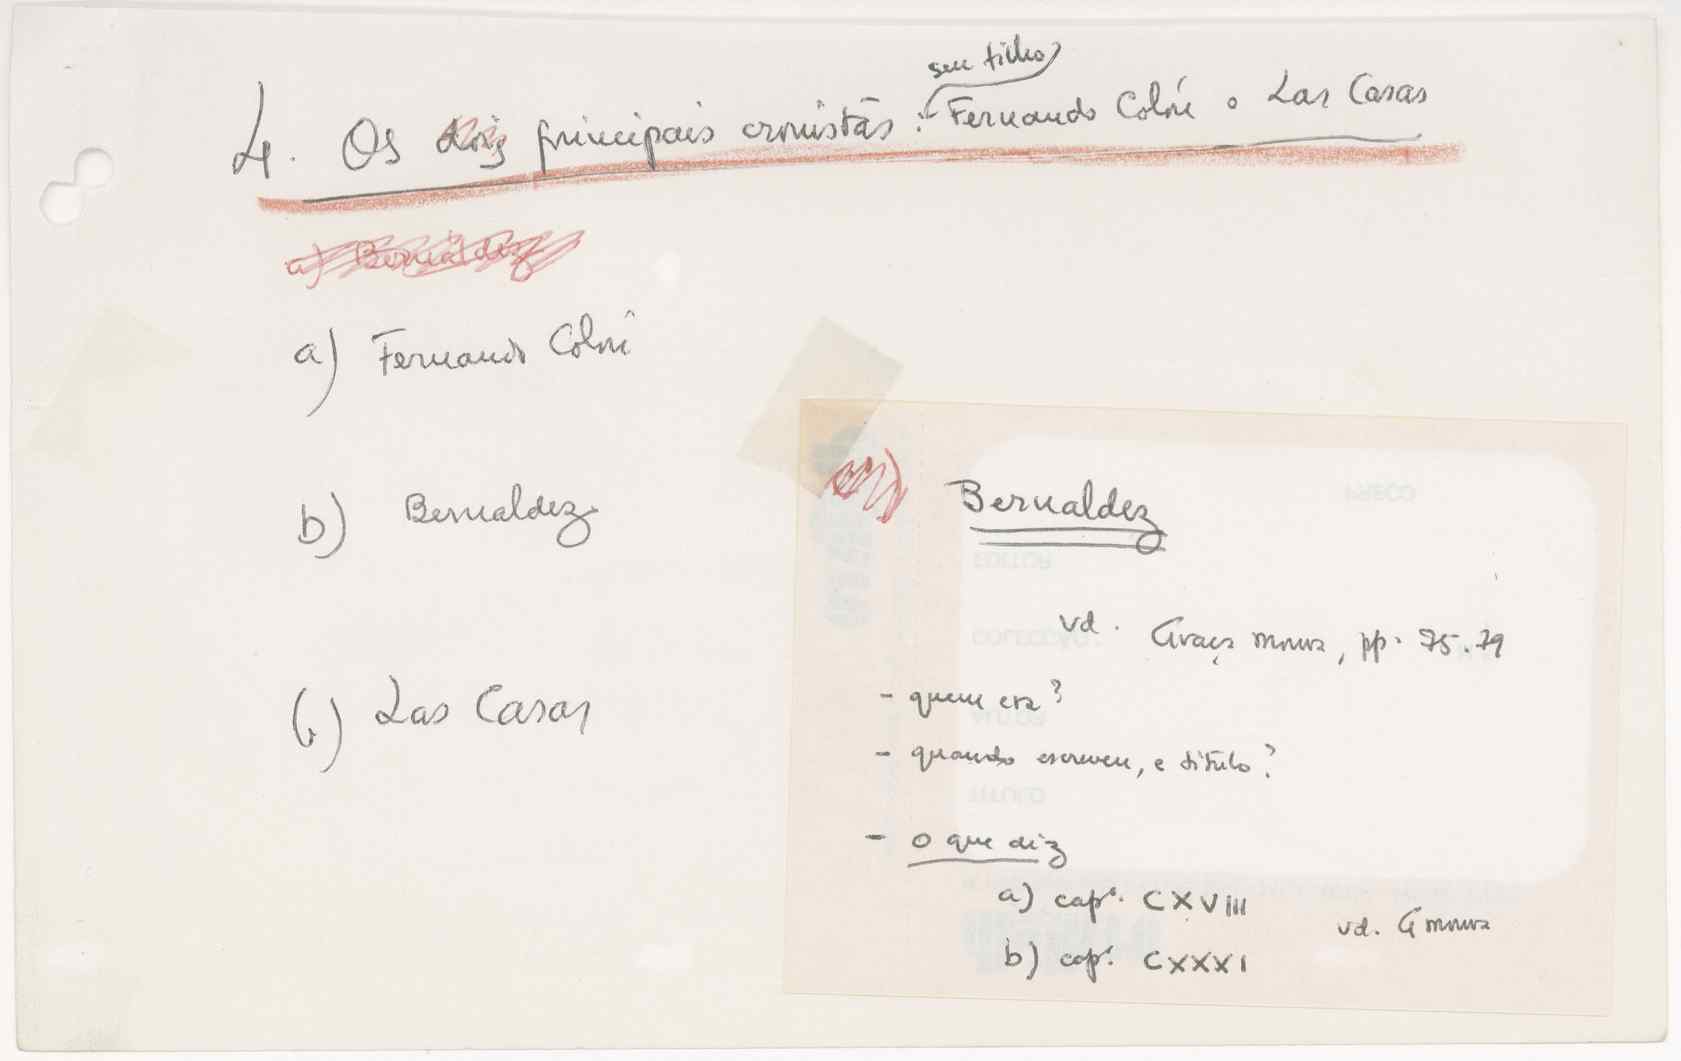 seu filho
4. Os dois principais cronistas: Fernando Colón e Las Casas
a) Bernaldez
a) Fernando Colón
b) Bernaldez
c) Las Casas
Bernaldez
vd. Graça Moura, pp. 75-79
- quem era?
- quando escreveu, e título?
- o que diz
a) cap. CXVIII
vd. G Moura
b) cap. CXXXI